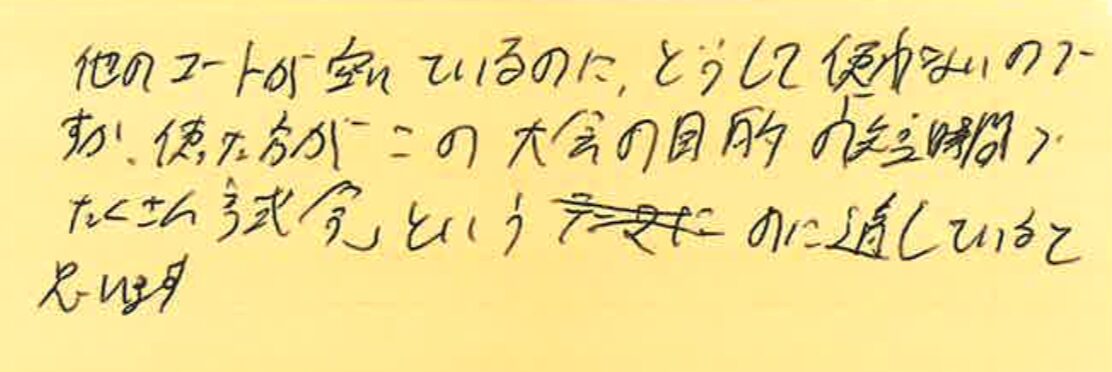 他のコートが空いているのに、どうして使わないので
すか、使った方がこの大会の目的の短時間で
たくさん試合というのに適していると
思います